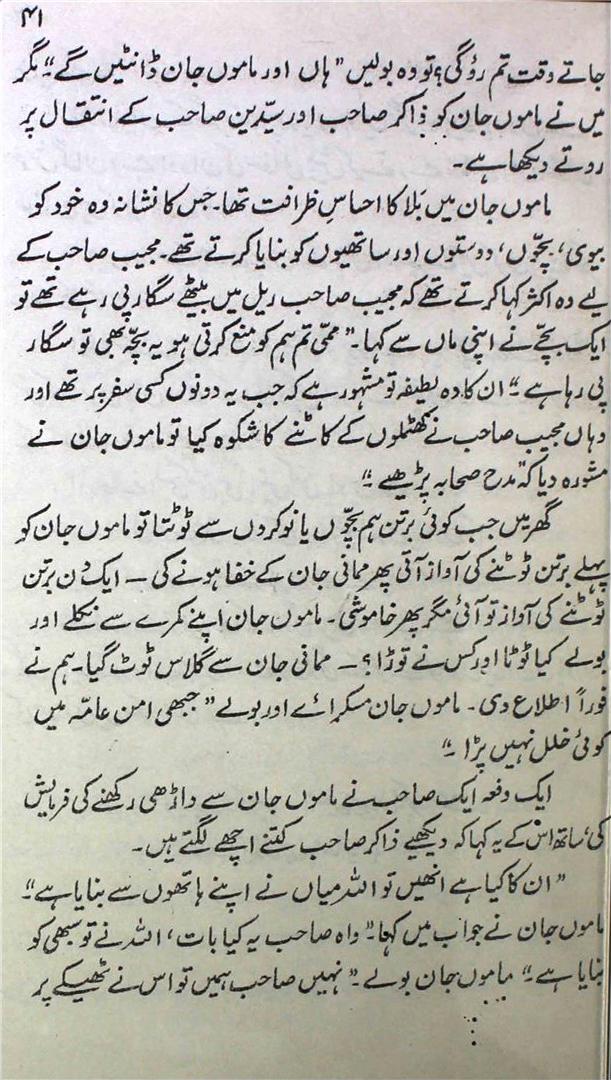 ۴۱
جاتے وقت تم روؤگی؟ تو وہ بولیں ”ہاں اور ماموں جان ڈانٹیں گے“۔ مگر
میں نے ماموں جان کو ذاکر صاحب اور سیّدین صاحب کے انتقال پر
روتے دیکھا ہے۔
ماموں جان میں بَلا کا احساسِ ظرافت تھا۔ جس کا نشانہ وہ خود کو
بیوی، بچّوں، دوستوں اور ساتھیوں کو بنایا کرتے تھے۔ مجیب صاحب کے
لیے وہ اکثر کہا کرتے تھے کہ مجیب صاحب ریل میں بیٹھے سگار پی رہے تھے تو
ایک بچّے نے اپنی ماں سے کہا۔ ”ممّی تم ہم کو منع کرتی ہو یہ بچّہ بھی تو سگار
پی رہا ہے“۔ ان کا وہ لطیفہ تو مشہور ہے کہ جب یہ دونوں کسی سفر پر تھے اور
وہاں مجیب صاحب نے کھٹملوں کے کاٹنے کا شکوہ کیا تو ماموں جان نے
مشورہ دیا کہ ”مدح صحابہ پڑھیے۔“
گھر میں جب کوئی برتن ہم بچّوں یا نوکروں سے ٹوٹتا تو ماموں جان کو
پہلے برتن ٹوٹنے کی آواز آتی پھر ممانی جان کے خفا ہونے کی ۔ ایک دن برتن
ٹوٹنے کی آواز تو آئی مگر پھر خاموشی۔ ماموں جان اپنے کمرے سے نکلے اور
بولے کیا ٹوٹا اور کس نے توڑا؟ ۔ ممانی جان سے گلاس ٹوٹ گیا۔ ہم نے
فوراً اطلاع دی۔ ماموں جان مسکرائے اور بولے ”جبھی امن عامّہ میں
کوئی خلل نہیں پڑا۔“
ایک دفعہ ایک صاحب نے ماموں جان سے داڑھی رکھنے کی فرمایش
کی، ساتھ اس کے یہ کہا کہ دیکھیے ذاکر صاحب کتنے اچھے لگتے ہیں۔
”ان کا کیا ہے انھیں تو اللہ میاں نے اپنے ہاتھوں سے بنایا ہے“۔
ماموں جان نے جواب میں کہا۔ ”واہ صاحب یہ کیا بات، اللہ نے تو سبھی کو
بنایا ہے“۔ ماموں جان بولے۔ ”نہیں صاحب ہمیں تو اس نے ٹھیکے پر